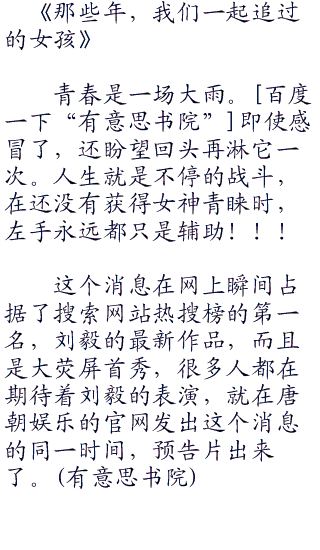 《那些年，我们一起追过
的女孩》
青春是一场大雨。[百度
一下“有意思书院”]即使感
冒了，还盼望回头再淋它一
次。人生就是不停的战斗，
在还没有获得女神青睐时，
左手永远都只是辅助！！！
这个消息在网上瞬间占
据了搜索网站热搜榜的第一
名，刘毅的最新作品，而且
是大荧屏首秀，很多人都在
期待着刘毅的表演，就在唐
朝娱乐的官网发出这个消息
的同一时间，预告片出来
了。(有意思书院)